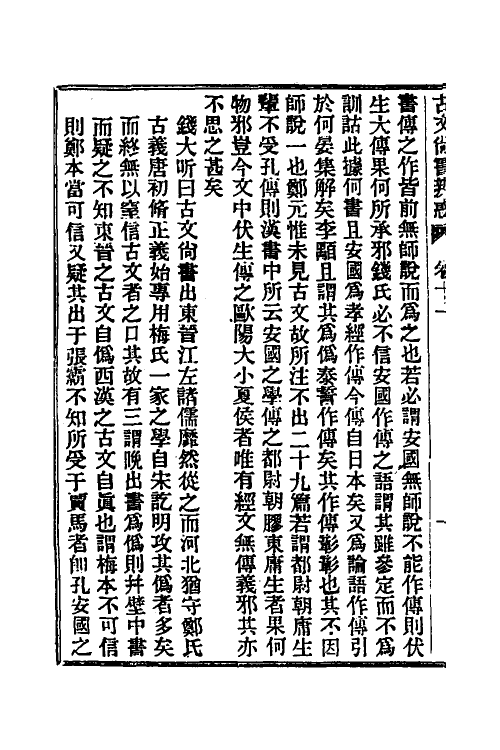 古文尚書辨惑 卷十一
書傳之作皆前無師說而爲之也若必謂安國無師說不能作傳則伏
生大傳果何所承邪錢氏必不信安國作傳之語謂其雖參定而不爲
訓詁此據何書且安國爲孝經作傳今傳自日本矣又爲論語作傳引
於何晏集解矣李顒且謂其爲僞泰誓作傳矣其作傳彰彰也其不因
師說一也鄭元惟未見古文故所注不出二十九篇若謂都尉朝庸生
輩不受孔傳則漢書中所云安國之學傳之都尉朝膠東庸生者果何
物邪豈今文中伏生傳之歐陽大小夏侯者唯有經文無傳義邪其亦
不思之甚矣
錢大昕曰古文尙書出東晉江左諸儒靡然從之而河北猶守鄭氏
古義唐初脩正義始專用梅氏一家之學自宋訖明攻其僞者多矣
而終無以窒信古文者之口其故有三謂晚出書爲僞則幷壁中書
而疑之不知東晉之古文自僞西漢之古文自眞也謂梅本不可信
則鄭本當可信又疑其出于張霸不知所受于賈馬者卽孔安國之